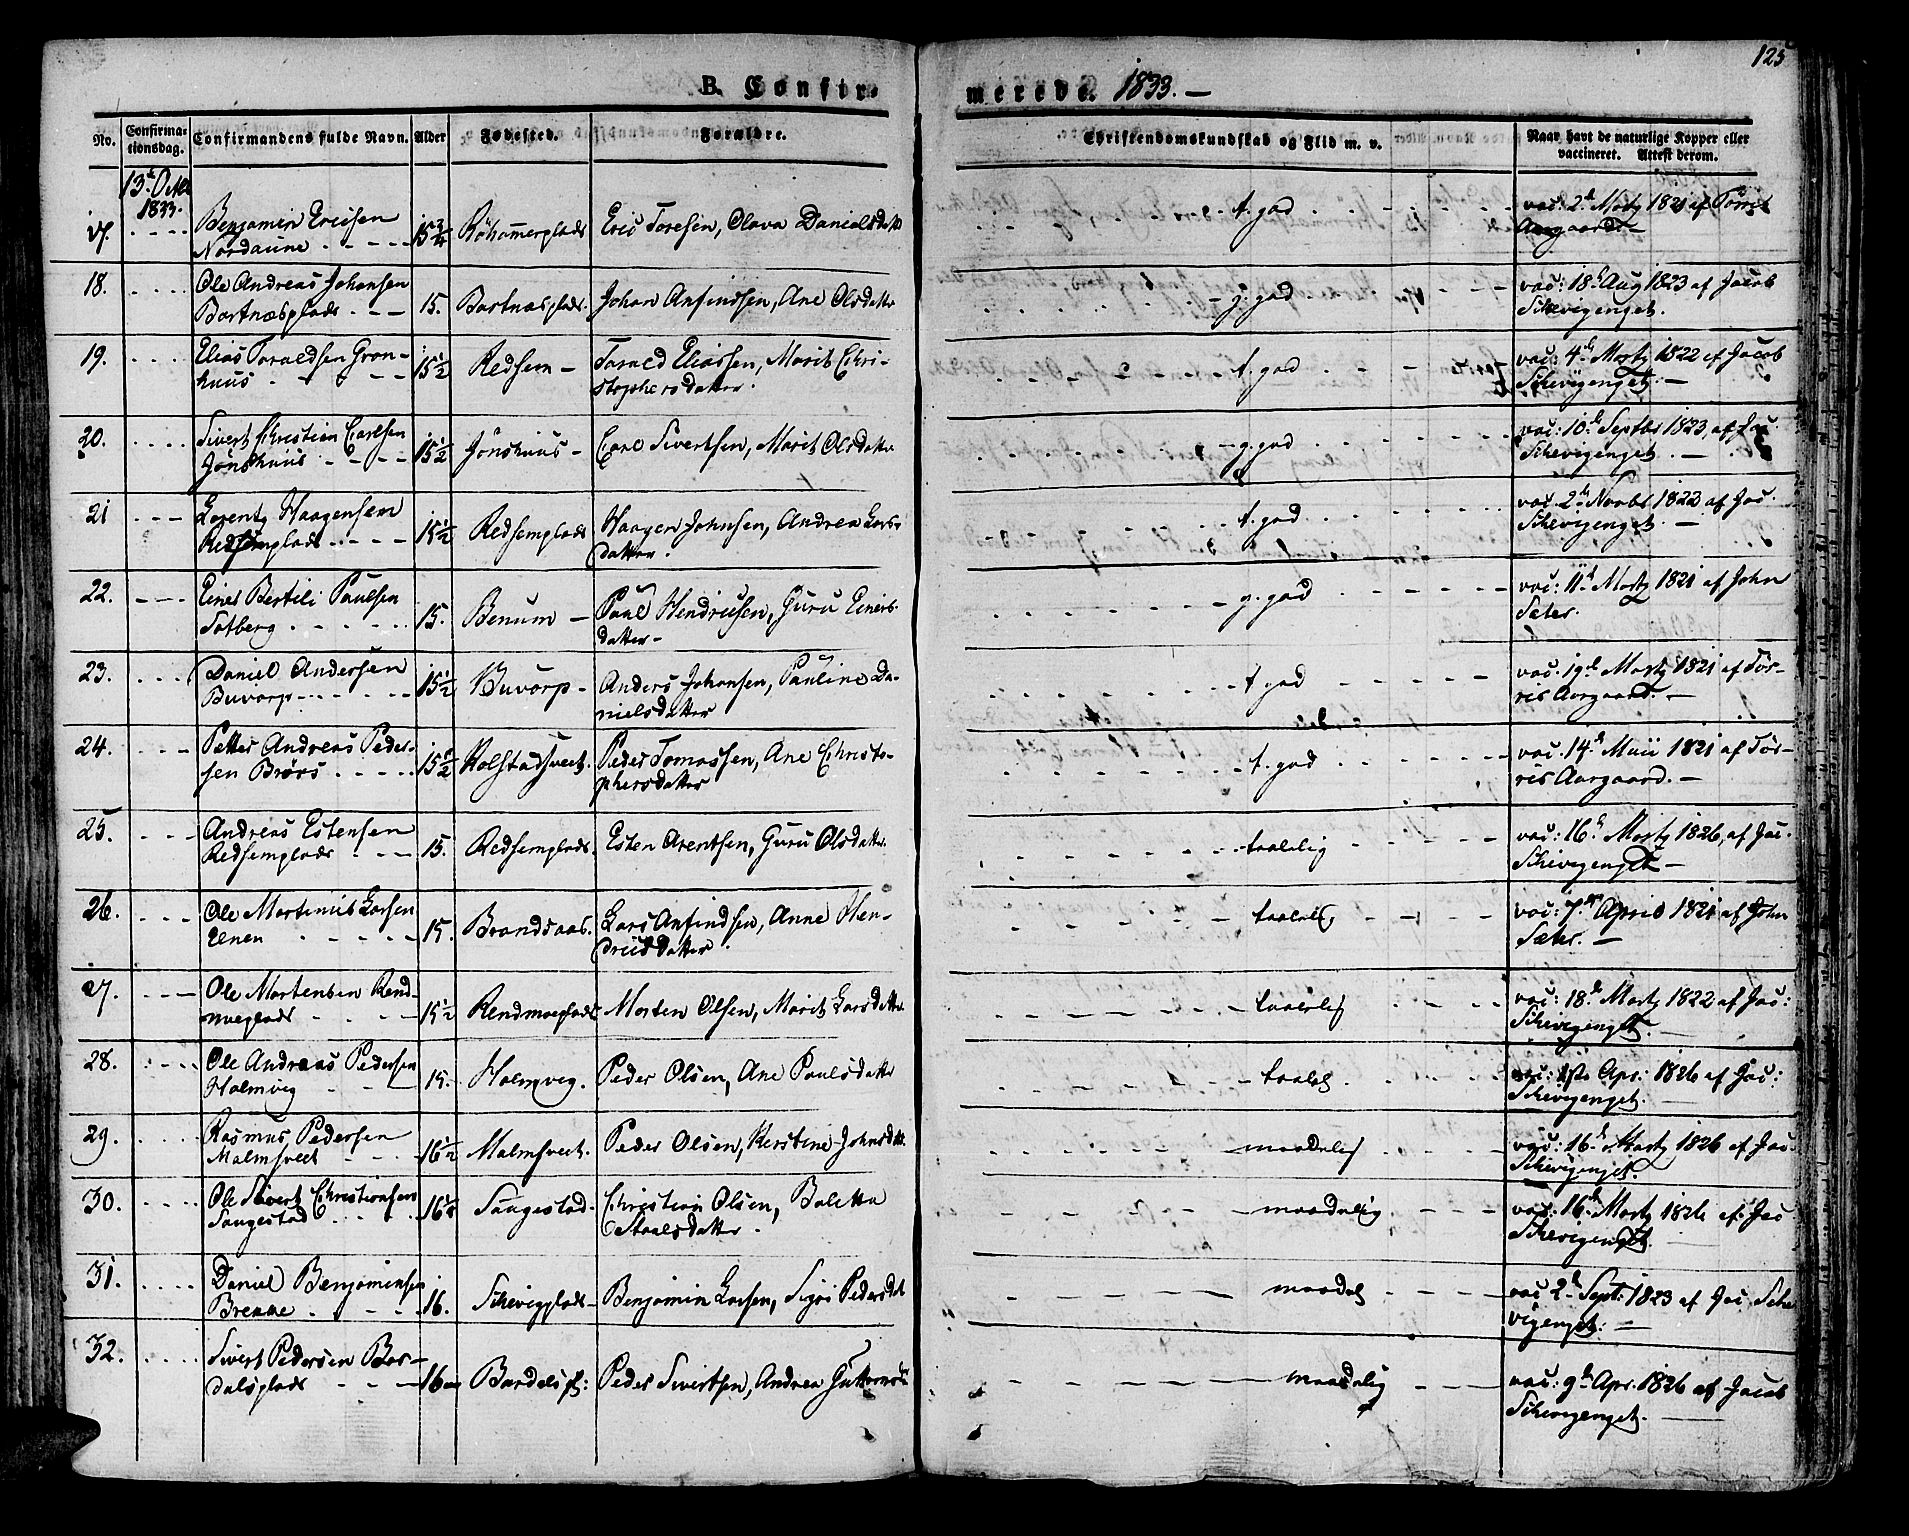 125
B. Confir-
merede. 1833. —
No.
Confirma-
tionsdag.
Confirmandens fulde Navn.
Alder
Fødested.
Forældre.
Christendomskundskab og Flid m. v.
Naar havt de naturlige Kopper eller
vaccineret. Attest derom.
13de Octbr
1833.
17.
Benjamin Ericsen
Nordaune
15 3/4
Eric Toresen, Olava Danielsdatt
t. god
vac: 2d Martz 1821 af Törris
Aargaard. —
18.
Ole Andreas Johansen
Bartnæsplads
15.
Bartnæsplads.
Johan Anfindsen, Ane Olsdatter
g. god
vac: 18d Aug 1823 af Jacob
Schevigenget.
19.
Elias Taraldsen Gron-
huus
15 1/2
Redsem —
Tarald Eliassen, Marit Chri-
stophersdatter.
t. god
vac: 4d Martz 1822 af Jacob
Schevigenget. —
20.
Sivert Christian Carlsen
Jönshuus
15 1/2
Jönshuus —
Carl Sivertsen, Marit Olsdatter
g. god
vac: 10d Septbr 1823, af Jac.
Schevigenget. —
21
Lorentz Haagensen
Redsemplads
15 1/2
Redsemplads
Haagen Johnsen, Andrea Lars-
datter.
t. god
vac: 2d Novbr 1822 af Jac.
Schevigenget. —
22.
Einer Bertili Paulsen
Solberg
15.
Benum —
Paul Hendricsen, Guru Einers-
datter —
g. god
vac: 11d Martz 1821 af John
Sæter.
23.
Daniel Andersen
Buvorp
15 1/2
Buvorp —
Anders Johansen, Pauline Da-
nielsdatter
t. god
vac: 19d Martz 1821 af Tör-
ris Aargaard. —
24.
Petter Andreas Peder-
sen Brørs
15 1/2
Rolstadsvect.
Peder Tomassen, Ane Christo-
phersdatter
t. god
vac: 14d Maii 1821 af Tör-
ris Aargaard. —
25.
Andreas Estensen
Redsemplads
15.
Redsemplads.
Esten Arentsen, Guru Olsdatter
taalelig
vac: 16d Martz 1826, af Jac.
Schevigenget —
26.
Ole Martinus Larsen
Elnen
15.
Brandsaas.
Lars Anfindsen, Anne Hen-
dricsdatter.
taalelig
vac: 7de April 1821 af John
Sæter. —
27.
Ole Mortensen Rend-
moeplads
15 1/2
Rendmoeplads
Morten Olsen, Marit Larsdatter
taalelig
vac: 18d Martz 1822 af Jac:
Schevigenget. —
28.
Ole Andreas Pedersen
Holmvig
15.
Holmvig.
Peder Olsen, Ane Paulsdatter
taalel
vac: 1ste Apr: 1826 af Jac:
Schevigenget.
29.
Rasmus Pedersen
Malmsvect
16 1/2
Malmsvect.
Peder Olsen, Kerstine Johnsdtt.
maadelig
vac: 16d Martz 1826 af Jac.
Schevigenget.
30.
Ole Sivert Christiansen
Saugestad
Saugestad.
Christian Olsen, Boletta
Staalsdatter.
maadelig
vac: 16d Martz 1826 af Jac
Schevigenget.
31.
Daniel Benjaminsen
Brenne
16.
Schevigplads —
Benjamin Larsen, Sigri Pedersdt
maadel
vac 2d Sept: 1823 af Jac. Sche
vigenget. —
32.
Sivert Pedersen Bar-
dalsplads
16
Bardalspl:
Peder Sivertsen, Andrea
maadelig
vac: 9d Apr. 1826 af Jacob
Schevigenget.